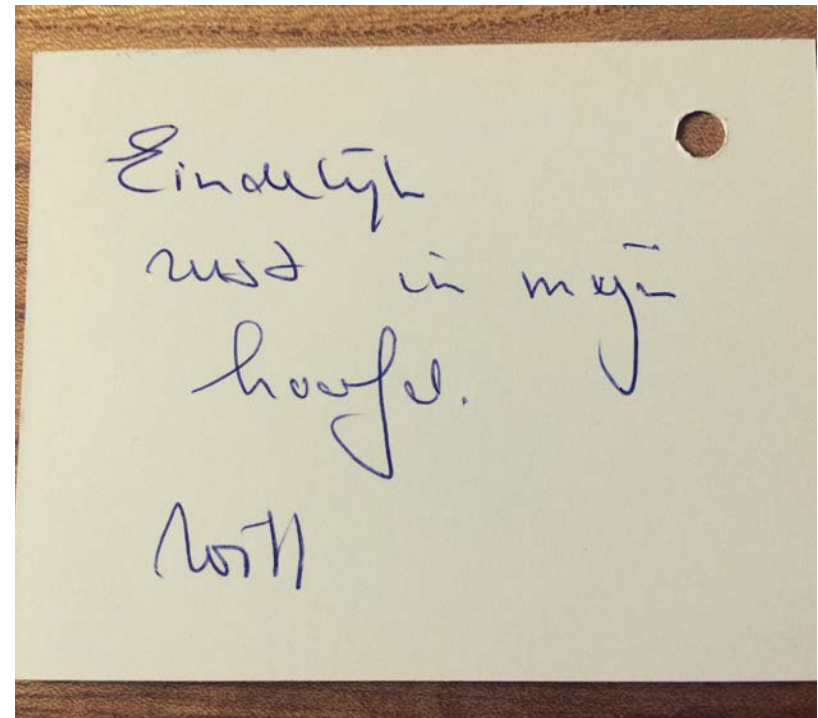 Eindelijk
rust in mijn
hoofd.